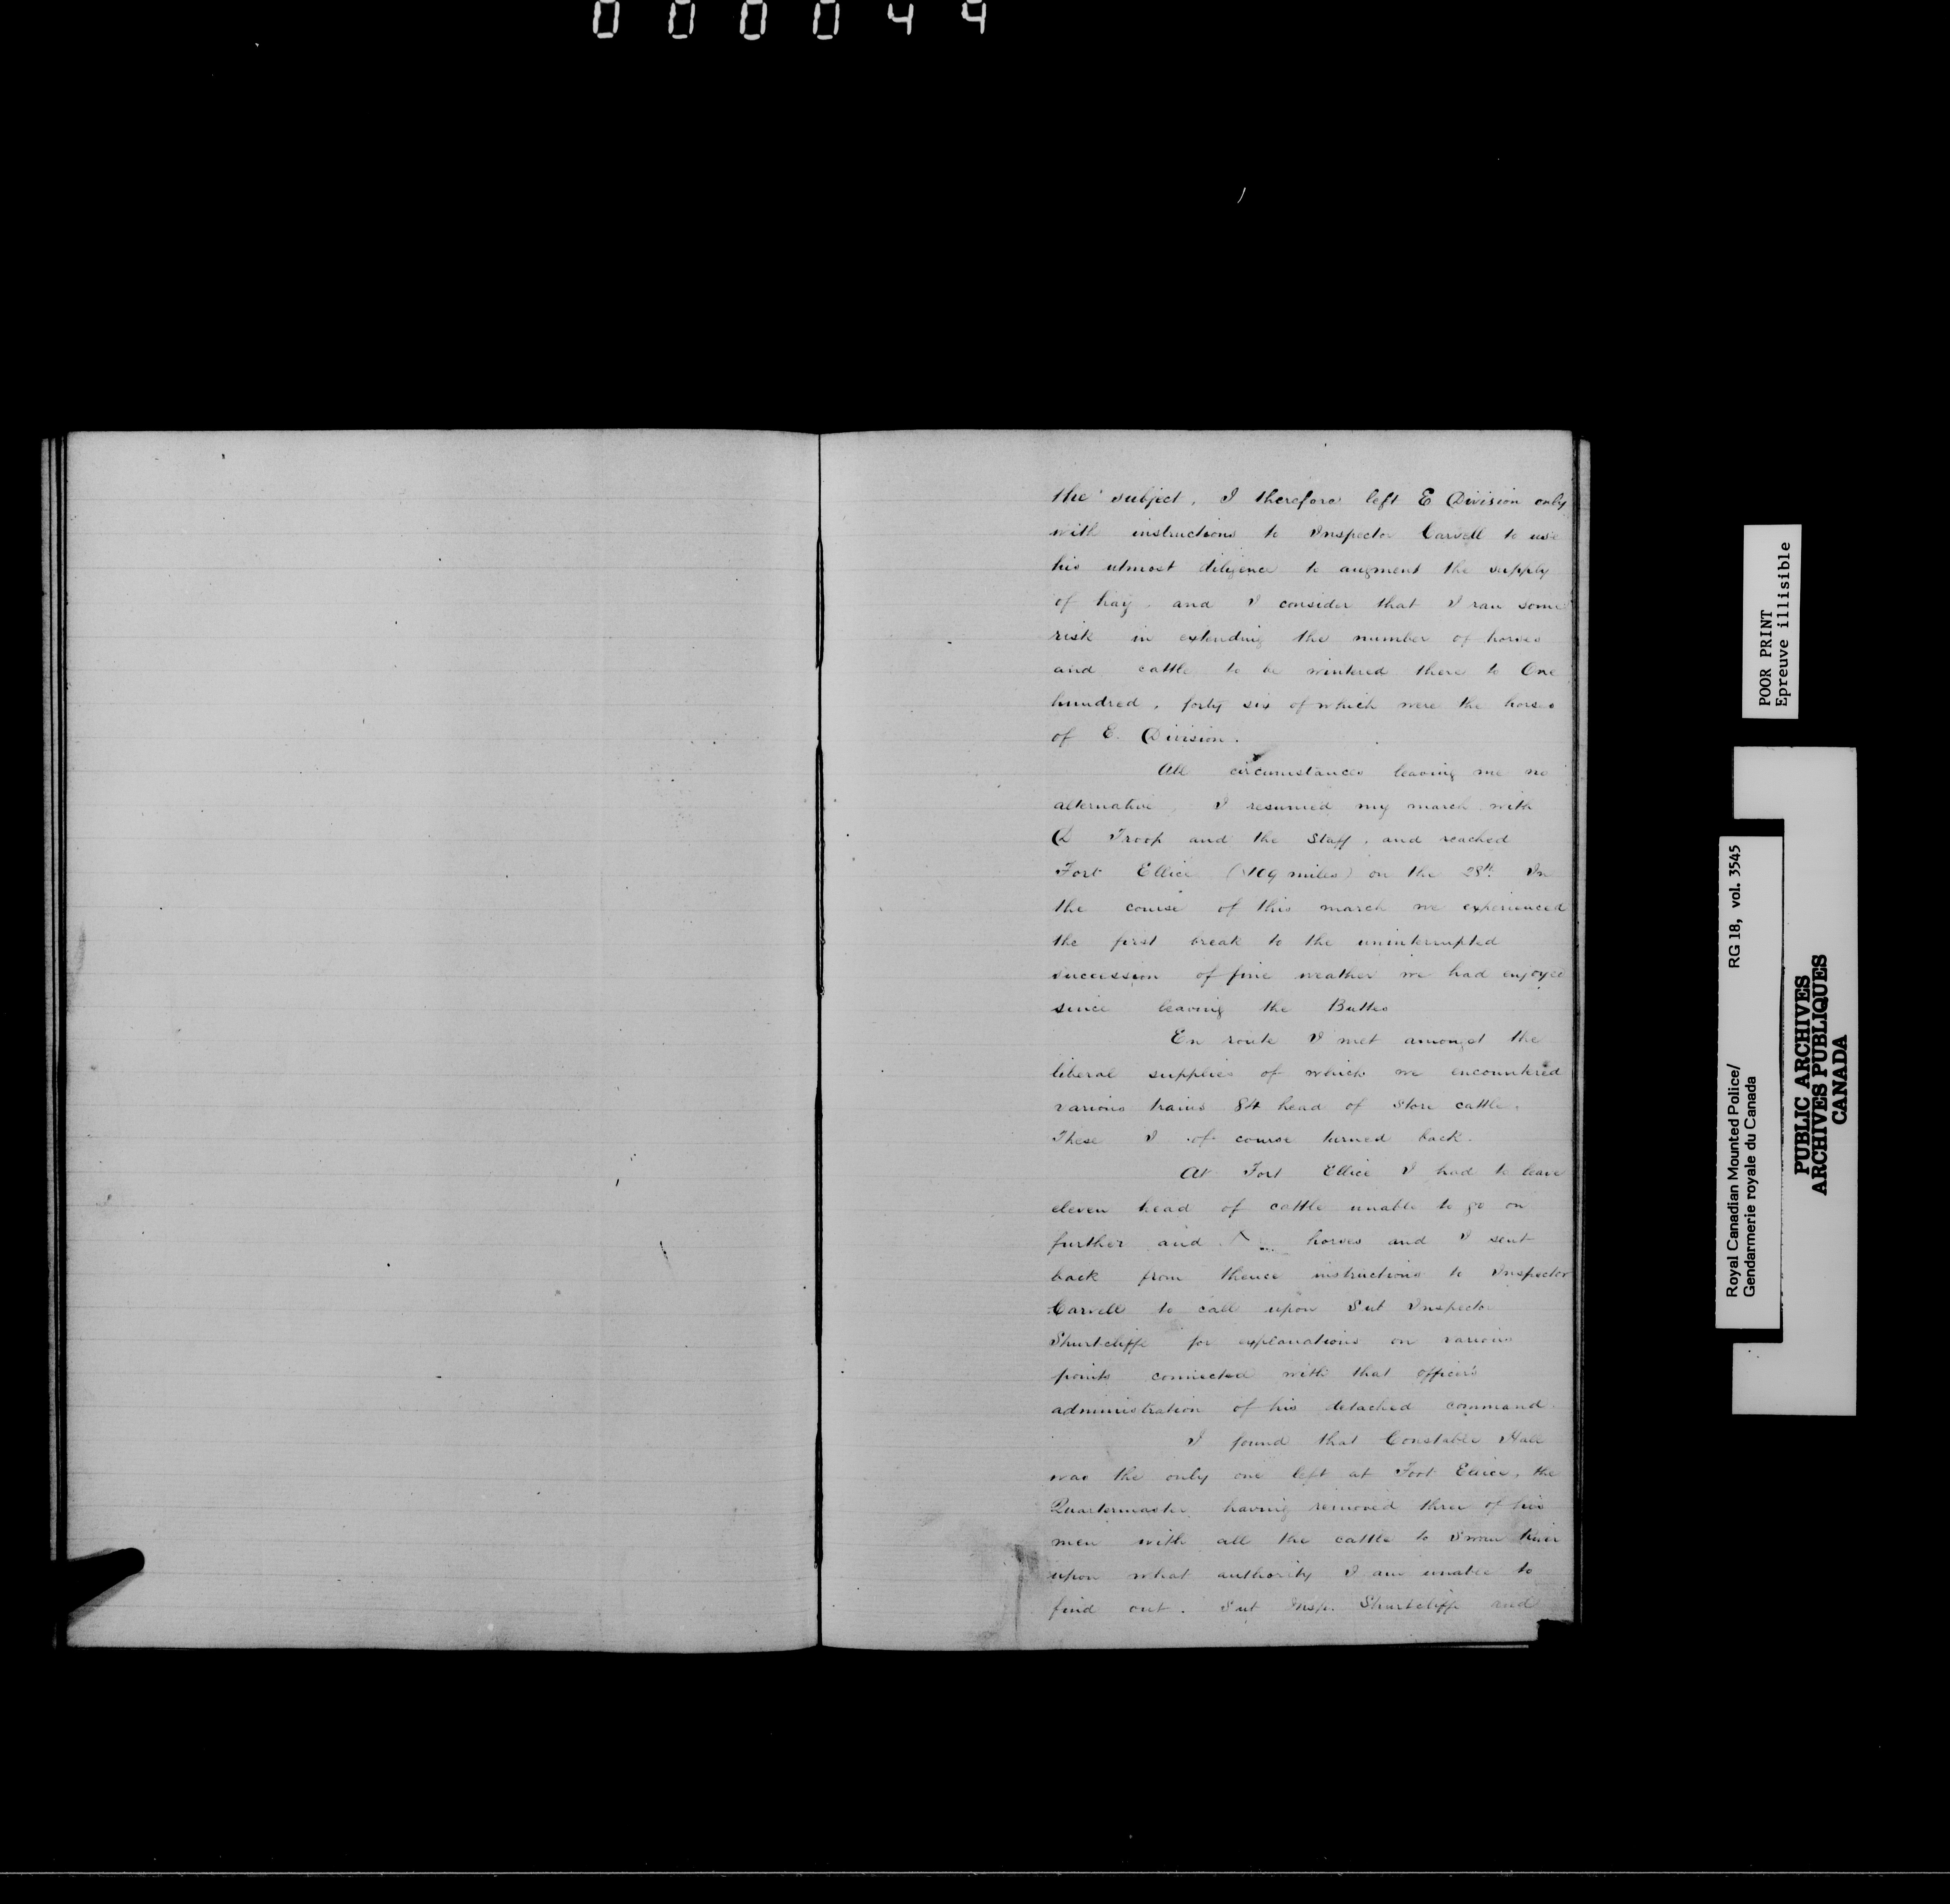 000044
the subject, I therefore left E Division only
with instructions to Inspector Carvell to use
his utmost diligence to augment the supply
of hay, and I consider that I ran some
risk in extending the number of horses
and cattle to be wintered there to One
hundred, forty six of which were the horse
of E. Division.
All circumstances leaving me no
alternative, I resumed my march with
D Troop and the Staff, and reached
Fort Ellice (109 miles) on the 28th. In
the course of this march we experienced
the first break to the uninterrupted
succession of fine weather we had enjoyed
since leaving the Buttes
En route I met amongst the
liberal supplies of which we encountered
various trains 84 head of store cattle.
These I of course turned back.
At Fort Ellice I had to leave
eleven head of cattle unable to go on
further and horses and I sent
back from thence instructions to Inspector
Carvell to call upon Sub Inspector
Shurtcliffe for explanations on various
points connected with that officer's
administration of his detached command.
I found that Constable Hall
was the only one left at Fort Ellice, the
Quartermaster having removed three of his
men with all the cattle to Swan River
upon what authority I am unable to
find out. Sub Insp. Shurtcliffe and
POOR PRINT
Epreuve illisible
Royal Canadian Mounted Police/ RG 18, vol. 3545
Gendarmerie royale du Canada
PUBLIC ARCHIVES
ARCHIVES PUBLIQUES
CANADA